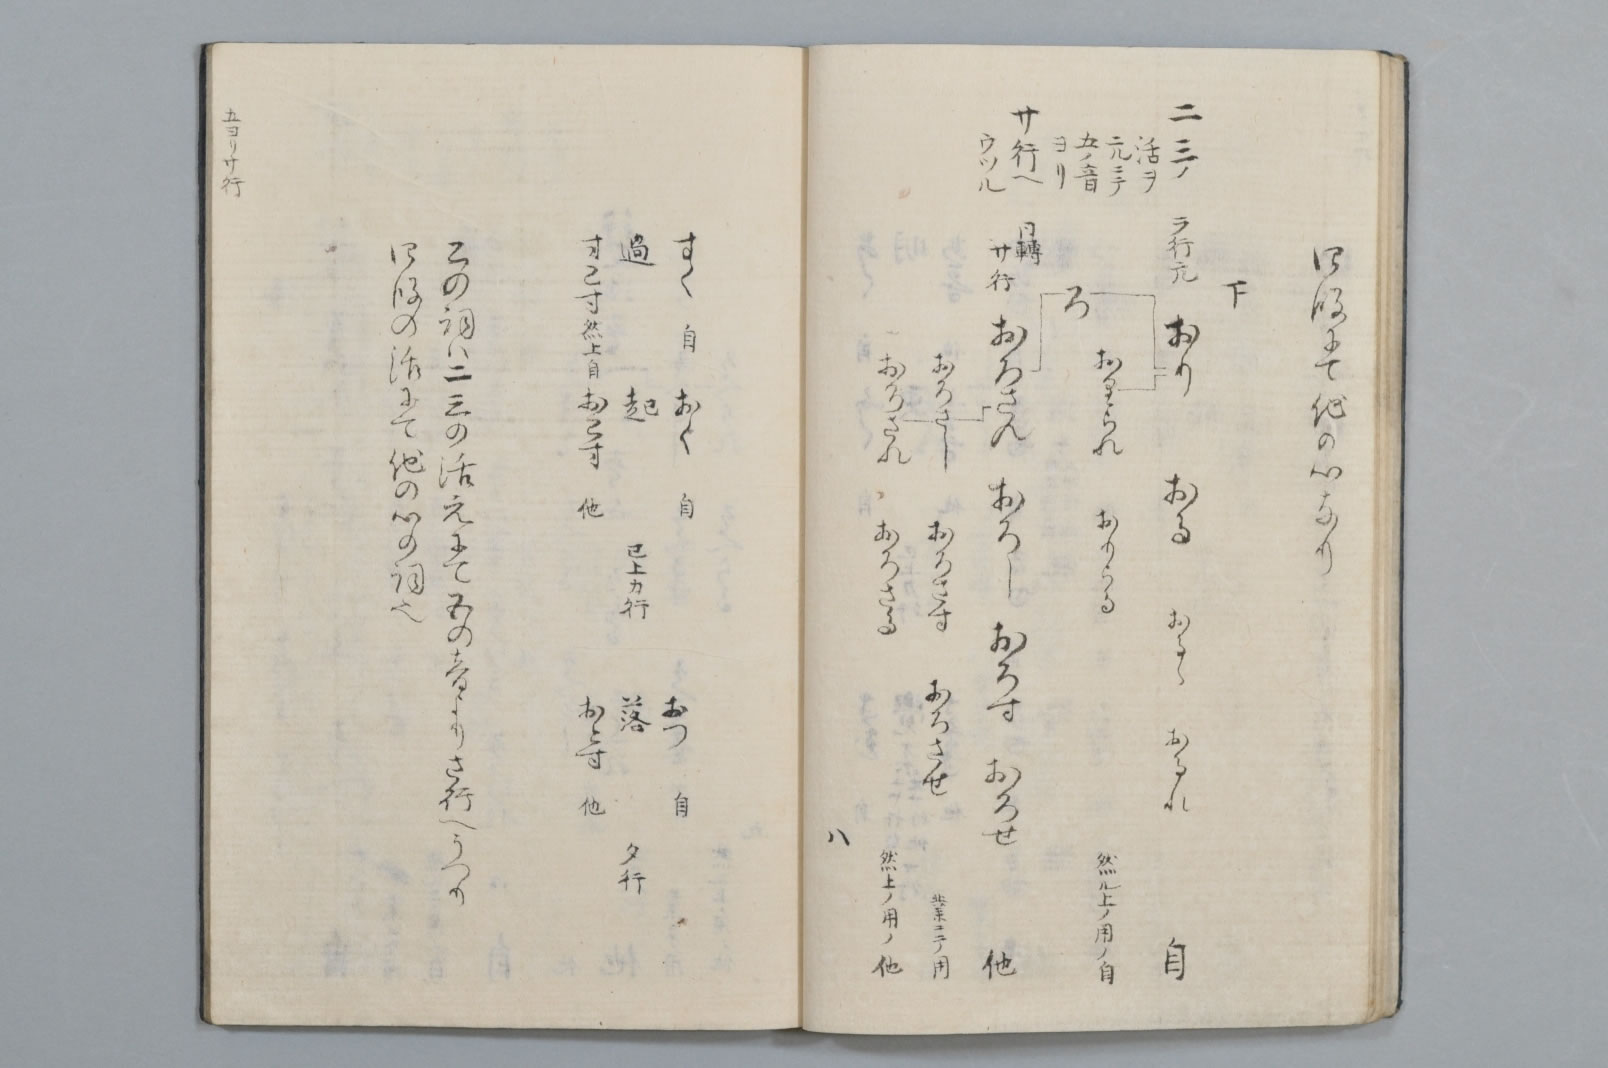 四段にて他の心なり
下
二三ノ
活ヲ
元ニテ
五ノ音
ヨリ
サ行ヘ
ウツル
ラ行元 おり おる おるゝ おるれ 自
おりられ おりらるる 然ル上ノ用ノ自
ろ
同轉
サ行 おろさん おろし おろす おろせ 他
おろさし おろさす おろさせ 業ニニノ用
おろされ おろさるる 然上ノ用ノ他
八
すく 自 おく 自 おつ 自
過 起 已上カ行 落 タ行
すこす然上自 おこす 他 おとす 他
この詞ハ二三の活元にて五の音よりさ行へうつり
四段の活にて他の心の詞也
五ヨリサ行